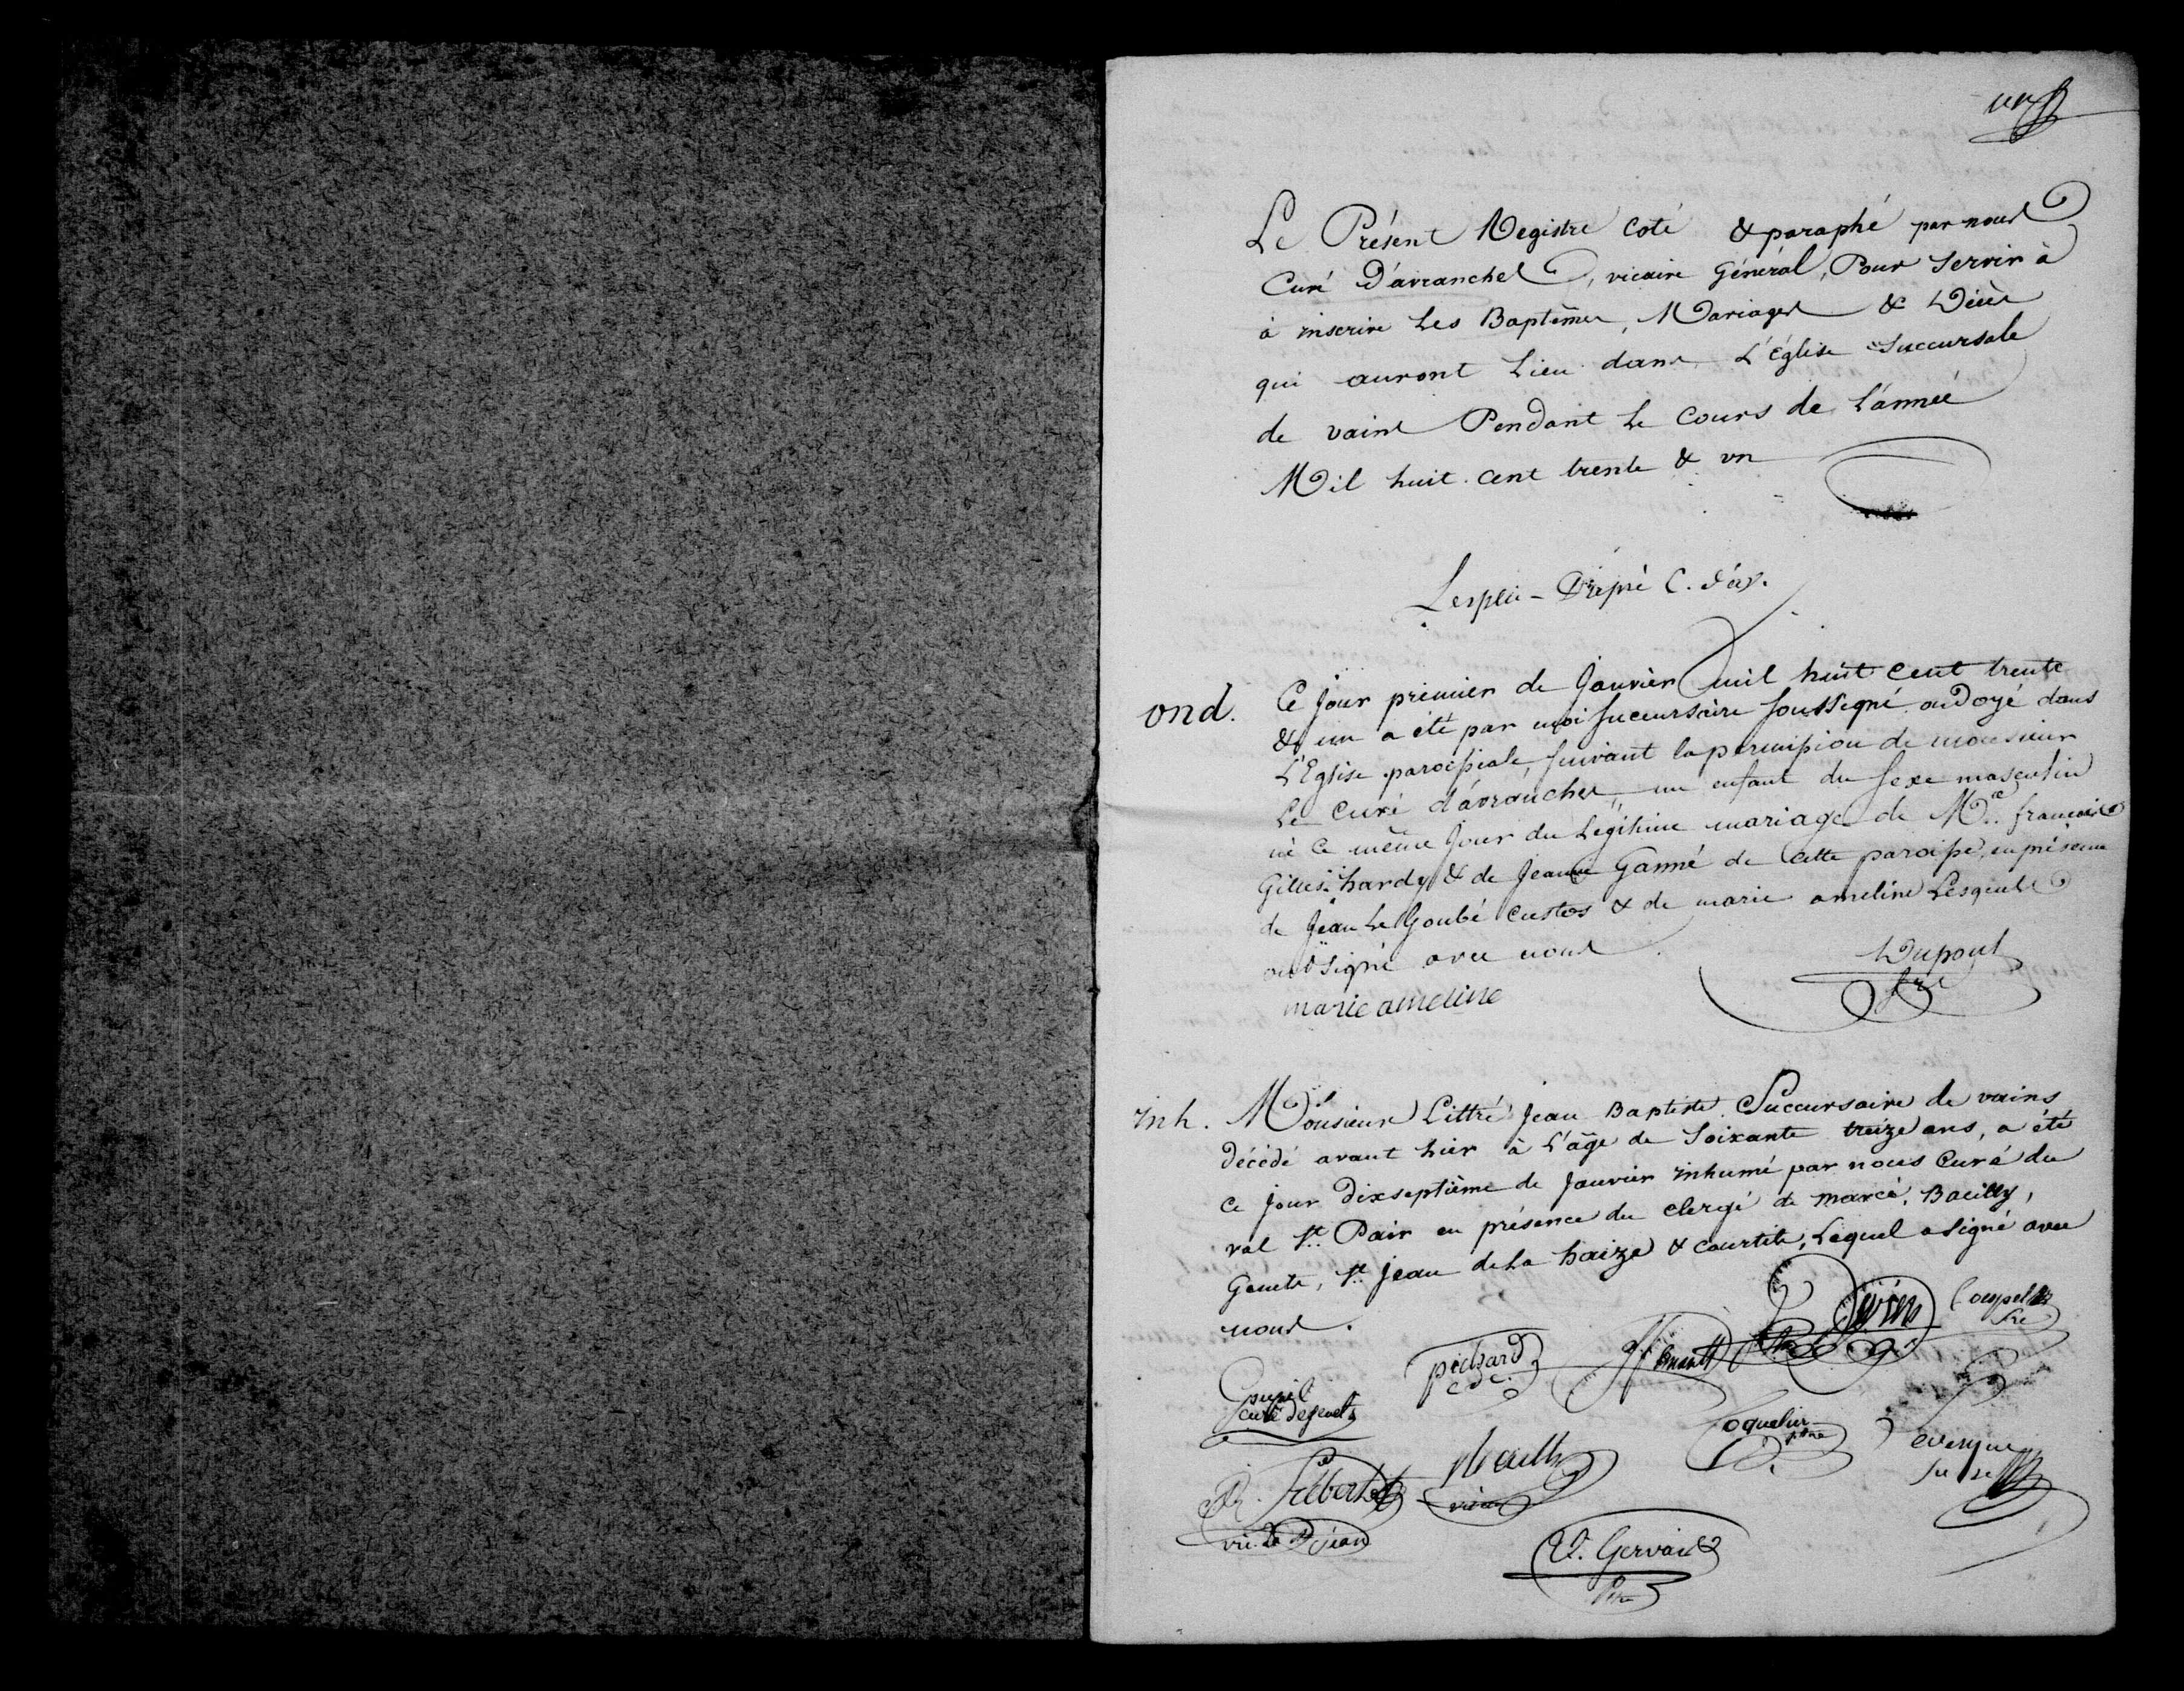 un
Le Présent Registre coté & paraphé par nous
Curé D'avranches, vicaire Général, Pour Servir à
à inscrire Les Baptêmes, Mariages & Décès
qui auront Lieu dans L'église Succursale
de vains Pendant Le Cours de L'année
Mil huit cent trente & un
C. d'av.
ond.
Ce jour premier de Janvier mil huit cent trente
& un a été par moi succursaire soussigné ondoyé dans
L'Eglise paroissiale, suivant la permission de monsieur
Le curé d'avranches un enfant du sexe masculin
né ce même jour du Légitime mariage de Me. francois
Gilles hardy & de Jeanne Ganné de Cette paroisse, en présence
de Jean Le Goubé custos & de marie ameline Lesquels
ont signé avec nous
Dupont
marie ameline
inh.
Monsieur Littré Jean Baptiste Succursaire de vains
décédé avant hier à L'âge de Soixante treize ans, a été
ce jour dixseptième de Janvier inhumé par nous Curé du
val St. Pair en présence du clergé de marcé, Bacilly,
Genets, St. Jean de La haize & courtils, Lequel a signé avec
nous.
pichard
curé de genets
Coquelin
vic. de St Jean
V. Gervais